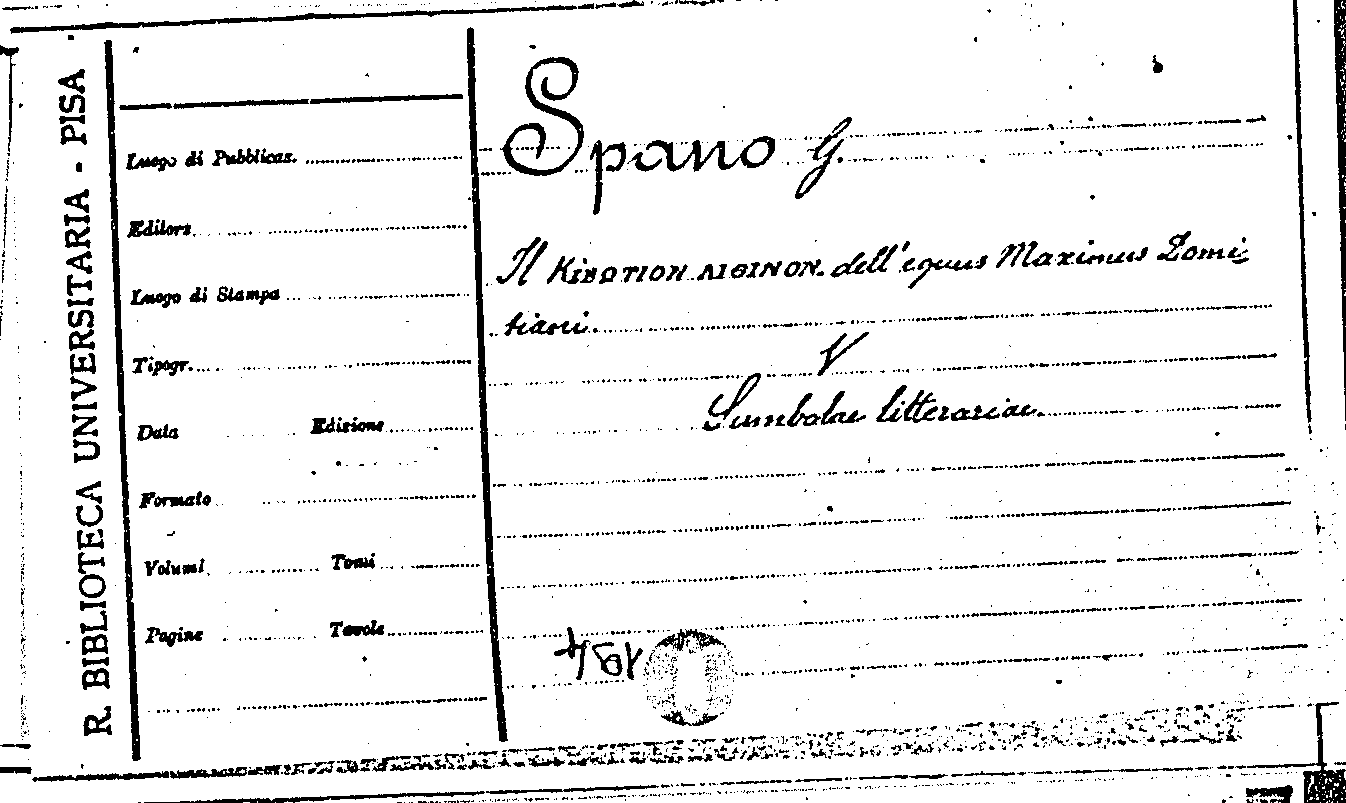 R. BIBLIOTECA UNIVERSITARIA - PISA
Luogo di Pubblicaz.
Editore
Luogo di Stampa
Tipogr.
Data Edizione
Formato
Volumi Tomi
Pagine Tavole
Spano G.
Il KIBOTION ΛIΘINON dell'equus Maximus Domi
tiani.
V
Sumbolae litterariae.